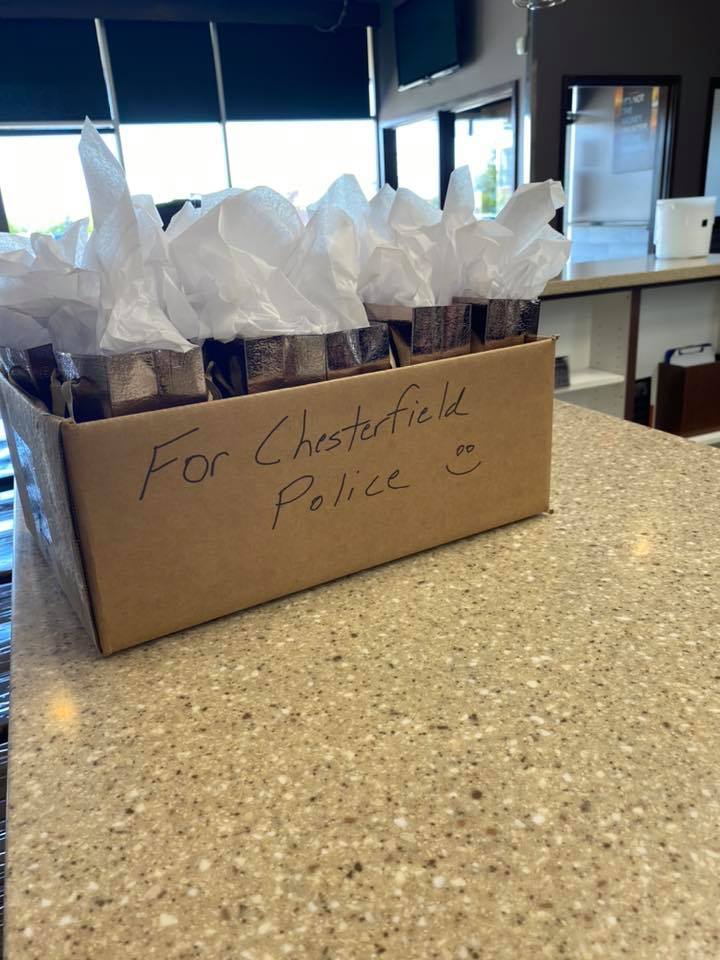 For Chesterfield
Police